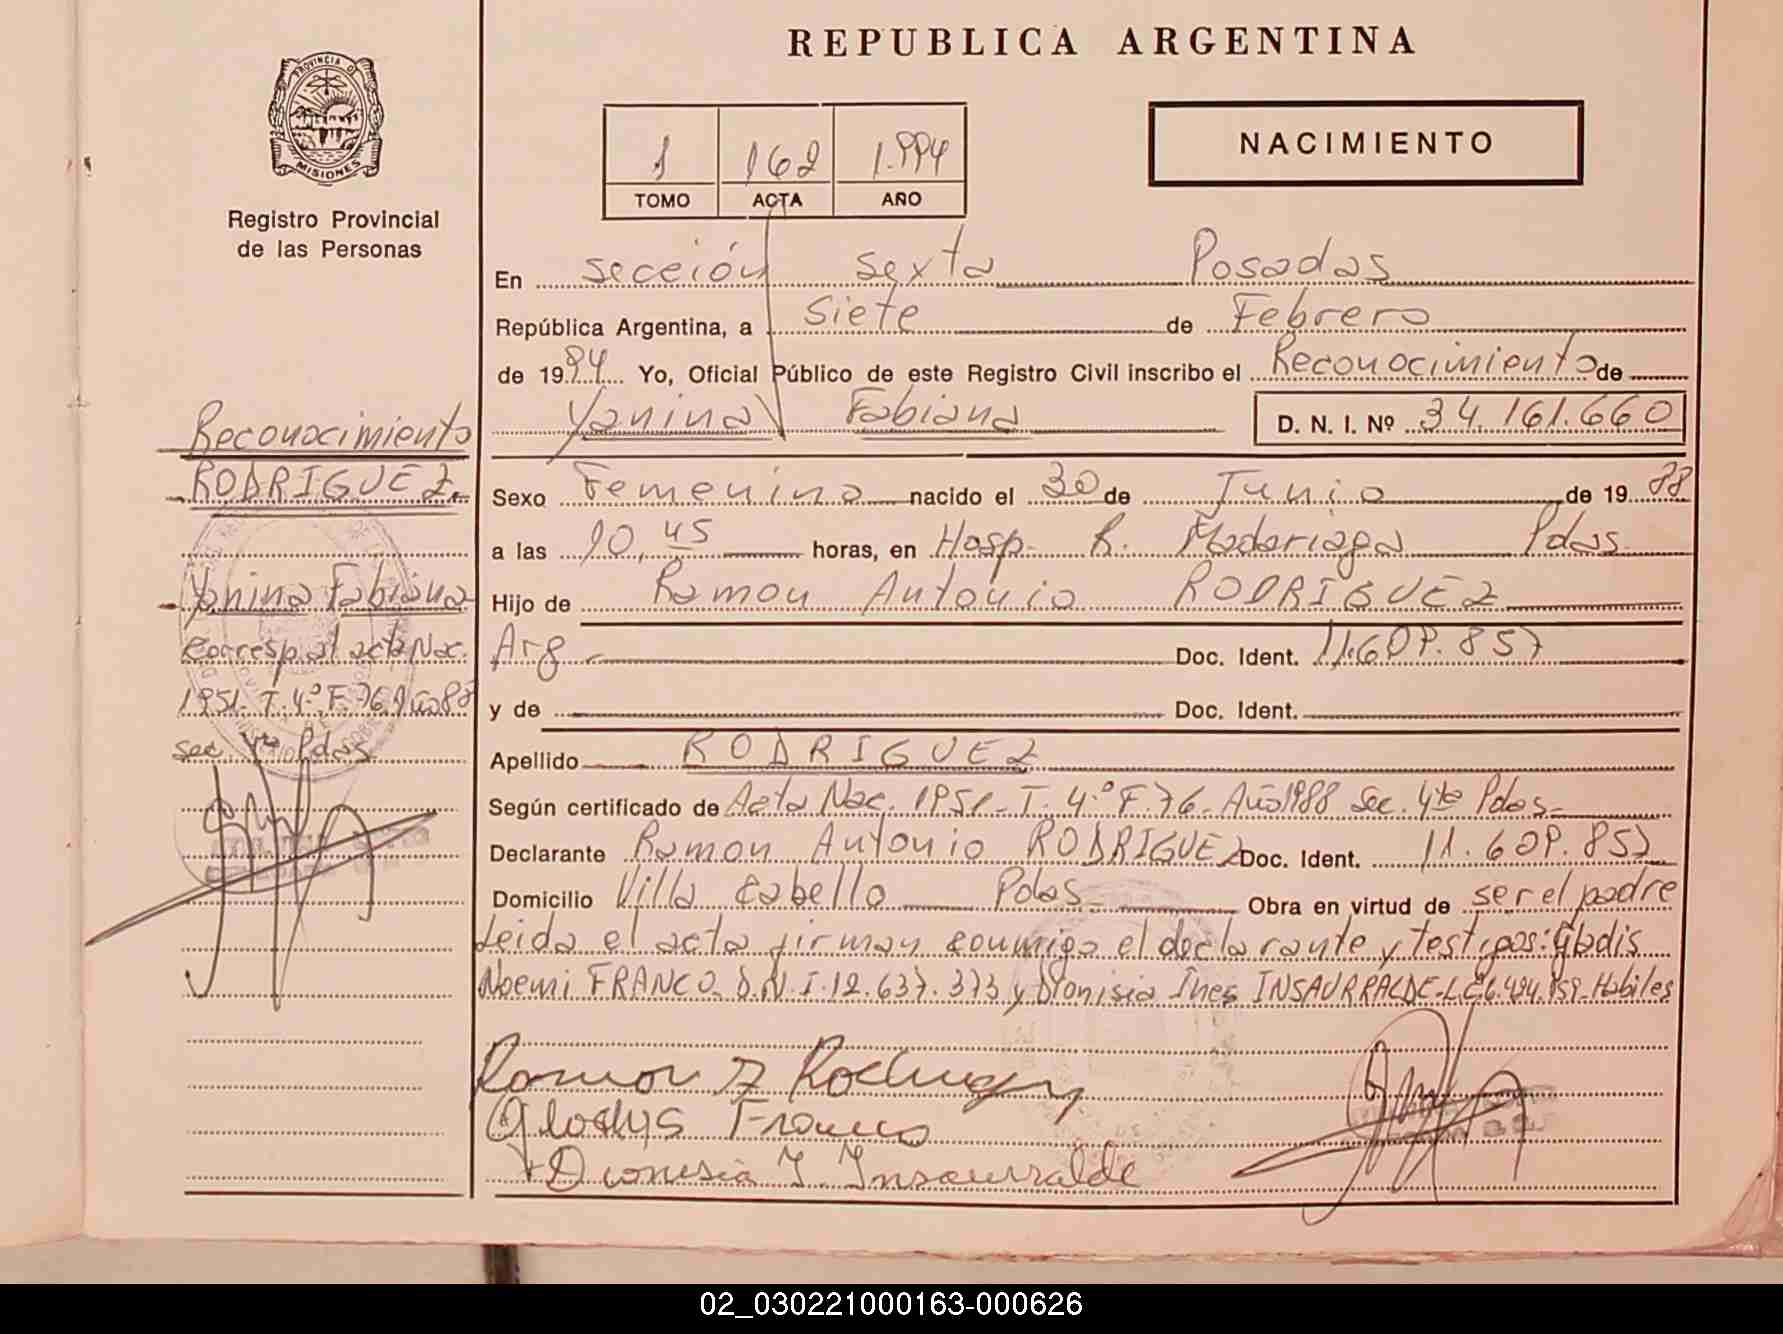 REPUBLICA ARGENTINA
PROVINCIA DE
MISIONES
Registro Provincial
de las Personas
1 162 1.994
TOMO ACTA AÑO
NACIMIENTO
En sección sexta Posadas
República Argentina, a Siete de Febrero
de 1994 Yo, Oficial Público de este Registro Civil inscribo el Reconocimiento de
Yanina Fabiana D. N. I. Nº 34.161.660
Sexo Femenino nacido el 30 de Junio de 1988
a las 10,45 horas, en Hosp. R. Madariaga Pdas.
Hijo de Ramon Antonio RODRIGUEZ
Arg. Doc. Ident. 11.609.857
y de Doc. Ident.
Apellido RODRIGUEZ
Según certificado de Acta Nac. 1951- T. 4.º F. 76- Año 1988 Sec. 4ta Pdas-
Declarante Ramon Antonio RODRIGUEZ Doc. Ident. 11.609.857
Domicilio Villa Cabello Pdas- Obra en virtud de ser el padre
Leida el acta firman conmigo el declarante y testigos: Gladis
Noemi FRANCO D.N.I. 12.637.373 y Dionisia Ines INSAURRALDE- L.C. 6.494.959- Habiles
Ramon A Rodriguez
Gladys Franco
Dionisia I. Insaurralde
Reconocimiento
RODRIGUEZ
Yanina Fabiana
Corresp. al acta Nac.
1951- T. 4.º F. 76 Año 88
sec. Pdas
02_030221000163-000626